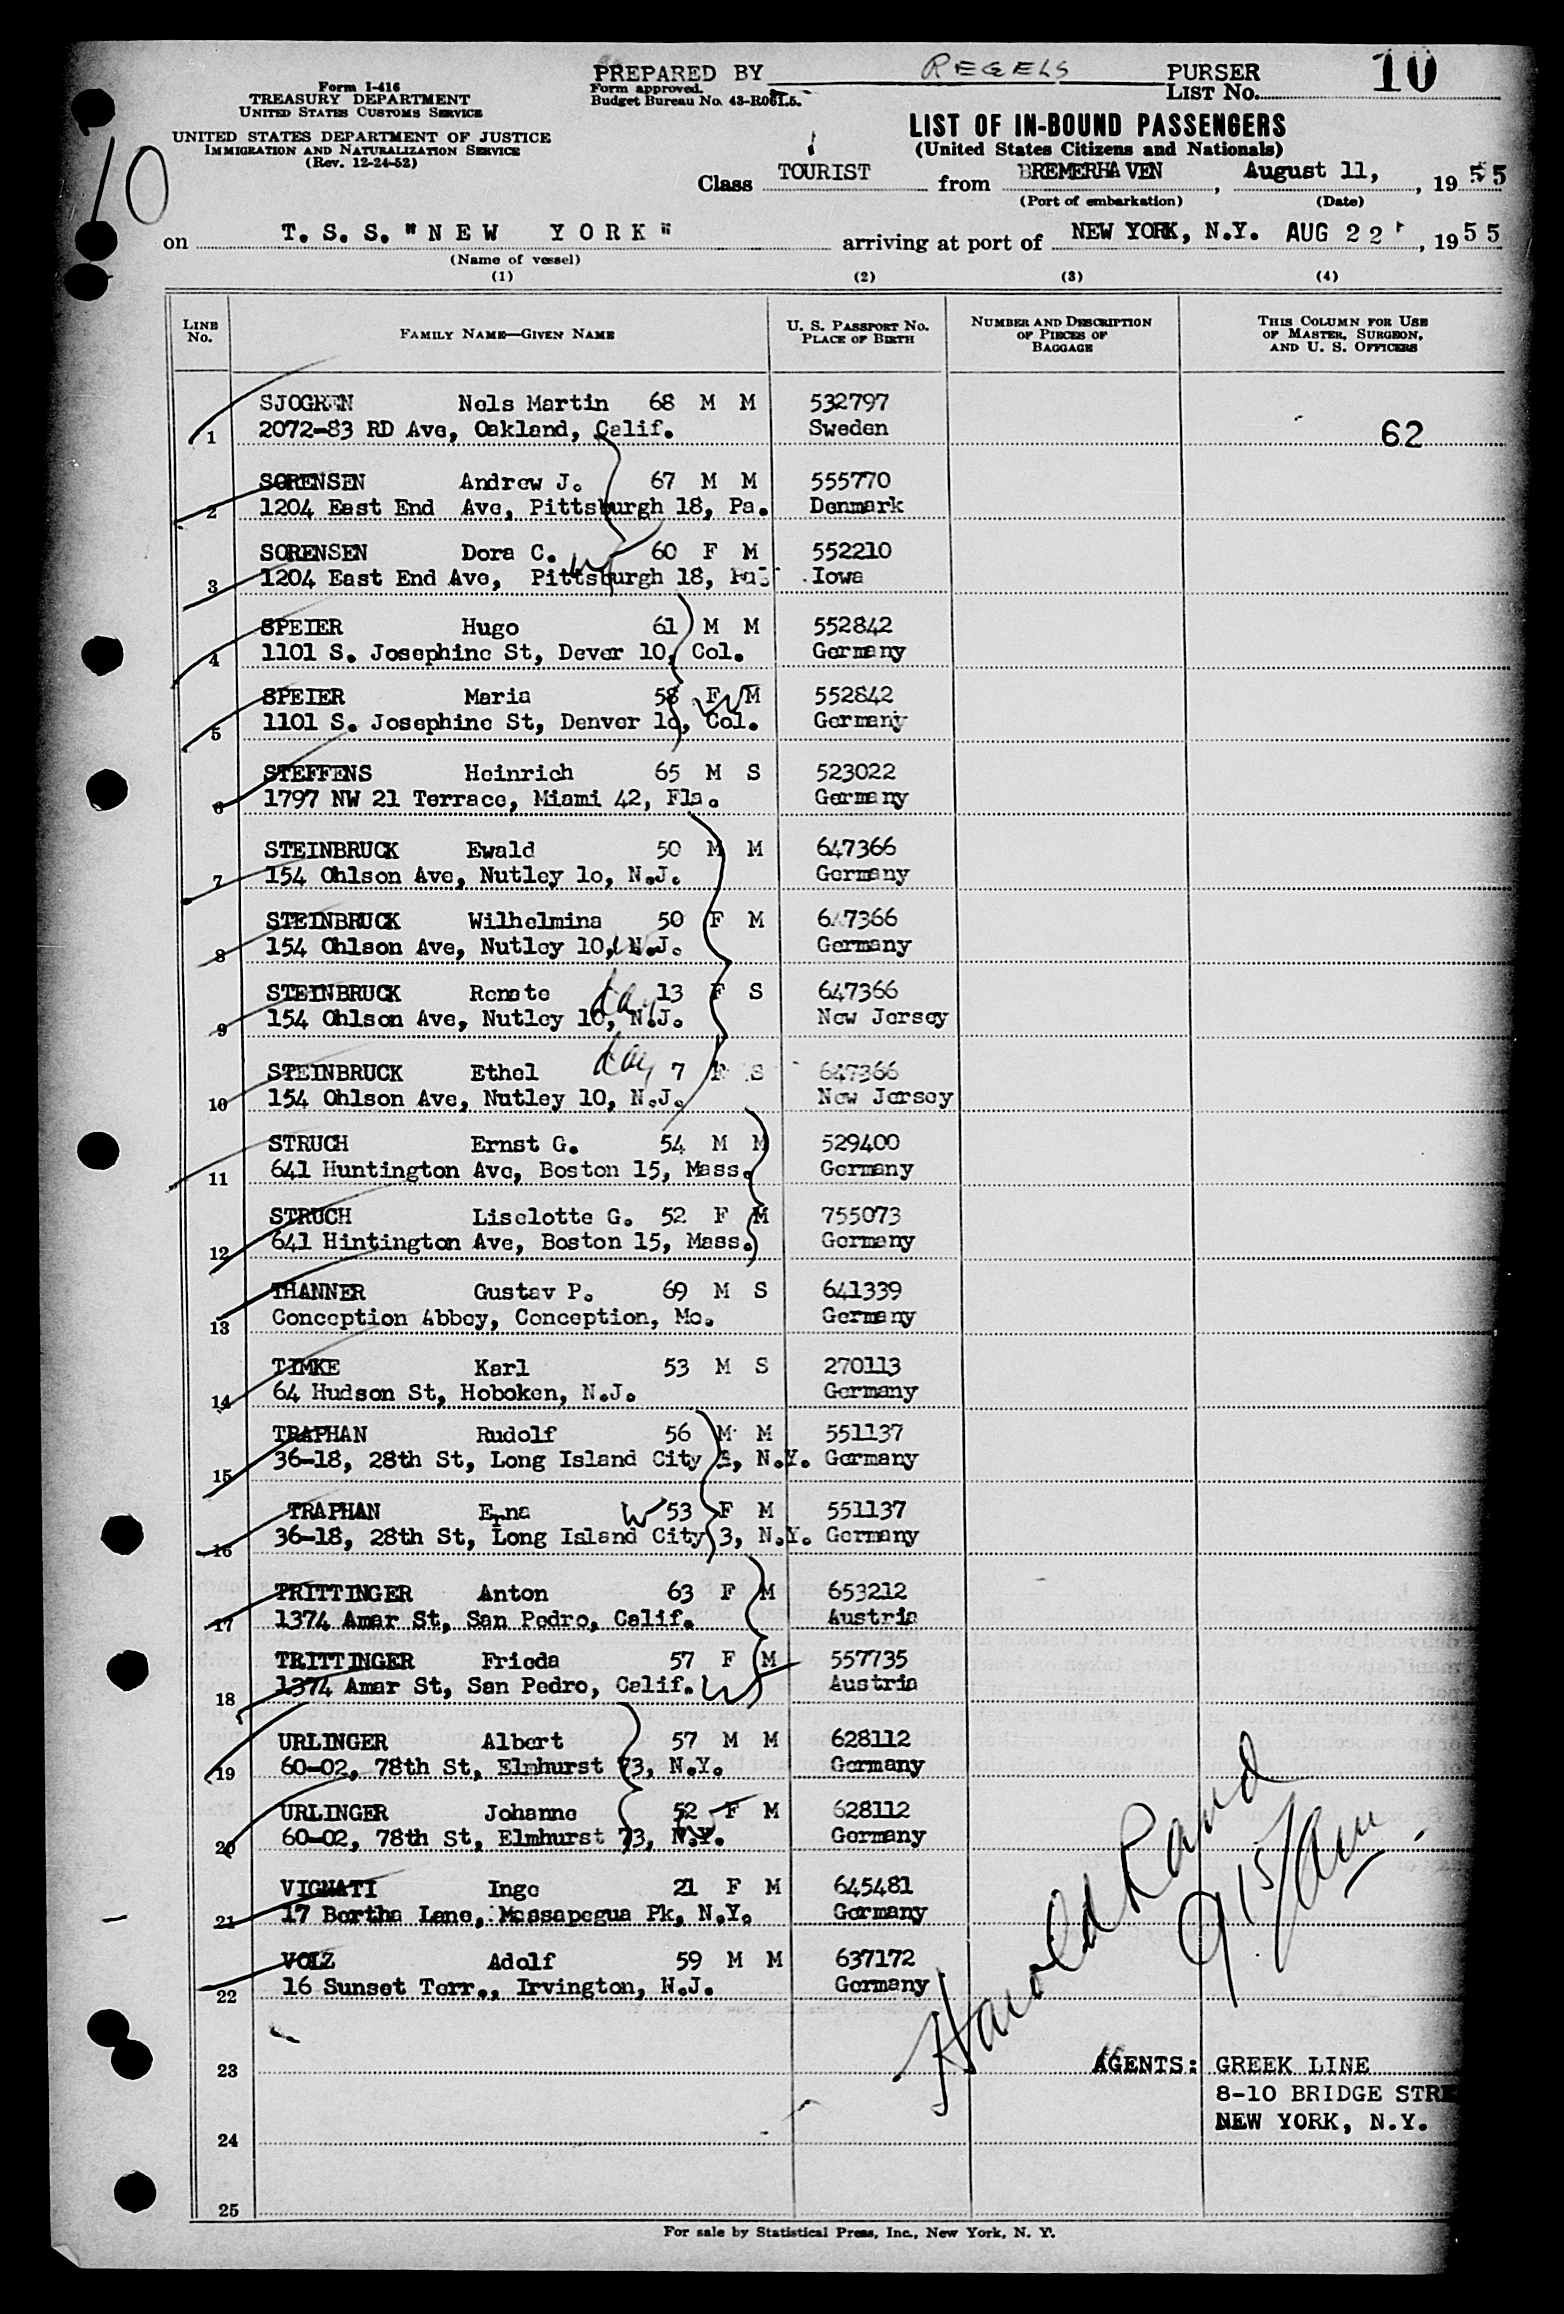 PREPARED BY REGELS PURSER
Form I-416
TREASURY DEPARTMENT
UNITED STATES CUSTOMS SERVICE
UNITED STATES DEPARTMENT OF JUSTICE
IMMIGRATION AND NATURALIZATION SERVICE
(Rev. 12-24-52)
Form approved.
Budget Bureau No. 43-R061.5.
LIST No. 10
10
LIST OF IN-BOUND PASSENGERS
(United States Citizens and Nationals)
Class TOURIST from BREMERHAVEN, August 11, , 1955
(Port of embarkation) (Date)
on T. S. S. "NEW YORK" arriving at port of NEW YORK, N.Y. AUG 22, 1955
(Name of vessel)
(1) (2) (3) (4)
LINE No. FAMILY NAME—GIVEN NAME U. S. PASSPORT NO. PLACE OF BIRTH NUMBER AND DESCRIPTION OF PIECES OF BAGGAGE THIS COLUMN FOR USE OF MASTER, SURGEON, AND U. S. OFFICERS
SJOGREN Nels Martin 68 M M 532797
1 2072-83 RD Ave, Oakland, Calif. Sweden 62
SORENSEN Andrew J. 67 M M 555770
2 1204 East End Ave, Pittsburgh 18, Pa. Denmark
SORENSEN Dora C. W 60 F M 552210
3 1204 East End Ave, Pittsburgh 18, Iowa
SPEIER Hugo 61 M M 552842
4 1101 S. Josephine St, Dever 10, Col. Germany
SPEIER Maria 58 F W M 552842
5 1101 S. Josephine St, Denver 10, Col. Germany
STEFFENS Heinrich 65 M S 523022
6 1797 NW 21 Terrace, Miami 42, Fla. Germany
STEINBRUCK Ewald 50 M M 647366
7 154 Ohlson Ave, Nutley 1o, N.J. Germany
STEINBRUCK Wilhelmina 50 F M 647366
8 154 Ohlson Ave, Nutley 10, N.J. Germany
STEINBRUCK Renate 13 F S 647366
9 154 Ohlson Ave, Nutley 10, N.J. New Jersey
STEINBRUCK Ethel 7 F S 647366
10 154 Ohlson Ave, Nutley 10, N.J. New Jersey
STRUCH Ernst G. 54 M M 529400
11 641 Huntington Ave, Boston 15, Mass. Germany
STRUCH Liselotte G. 52 F M 755073
12 641 Hintington Ave, Boston 15, Mass. Germany
THANNER Gustav P. 69 M S 641339
13 Conception Abbey, Conception, Mo. Germany
TIMKE Karl 53 M S 270113
14 64 Hudson St, Hoboken, N.J. Germany
TRAPHAN Rudolf 56 M M 551137
15 36-18, 28th St, Long Island City 3, N.Y. Germany
TRAPHAN Erna W 53 F M 551137
16 36-18, 28th St, Long Island City 3, N.Y. Germany
TRITTINGER Anton 63 F M 653212
17 1374 Amar St, San Pedro, Calif. Austria
TRITTINGER Frieda 57 F M 557735
18 1374 Amar St, San Pedro, Calif. W Austria
URLINGER Albert 57 M M 628112
19 60-02, 78th St, Elmhurst 73, N.Y. Germany
URLINGER Johanne 52 F M 628112
20 60-02, 78th St, Elmhurst 73, N.Y. Germany
VIGNATI Inge 21 F M 645481
21 17 Bertha Lane, Massapequa Pk, N.Y. Germany
VOLZ Adolf 59 M M 637172
22 16 Sunset Terr., Irvington, N.J. Germany
Harold Rand
915/Am
23 AGENTS: GREEK LINE
8-10 BRIDGE STRE
24 NEW YORK, N.Y.
25
For sale by Statistical Press, Inc., New York, N. Y.